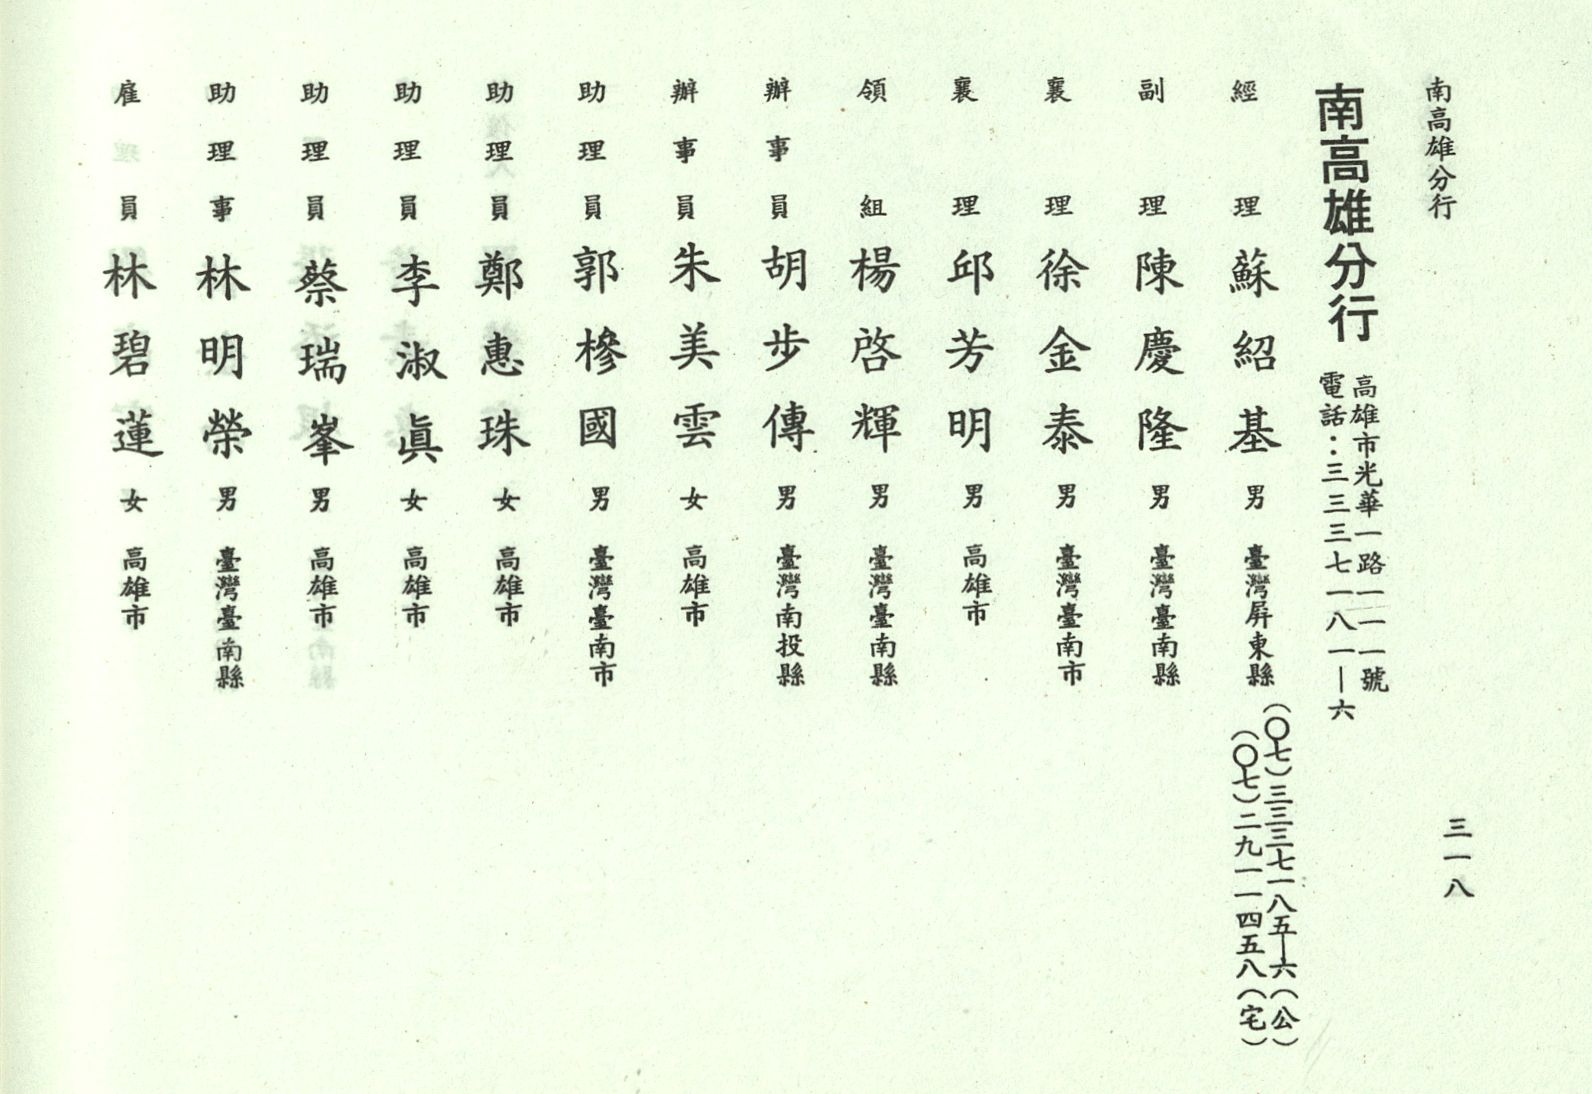 南高雄分行
三一八
南高雄分行
高雄市光華一路一一一號
電話：三三三七一八一—六
經理 蘇紹基 男 臺灣屏東縣 (〇七)三三三七一八五—六(公)
(〇七)二九一一四五八(宅)
副理 陳慶隆 男 臺灣臺南縣
襄理 徐金泰 男 臺灣臺南市
襄理 邱芳明 男 高雄市
領組 楊啓輝 男 臺灣臺南縣
辦事員 胡步傳 男 臺灣南投縣
辦事員 朱美雲 女 高雄市
助理員 郭槮國 男 臺灣臺南市
助理員 鄭惠珠 女 高雄市
助理員 李淑眞 女 高雄市
助理員 蔡瑞峯 男 高雄市
助理事 林明榮 男 臺灣臺南縣
雇員 林碧蓮 女 高雄市